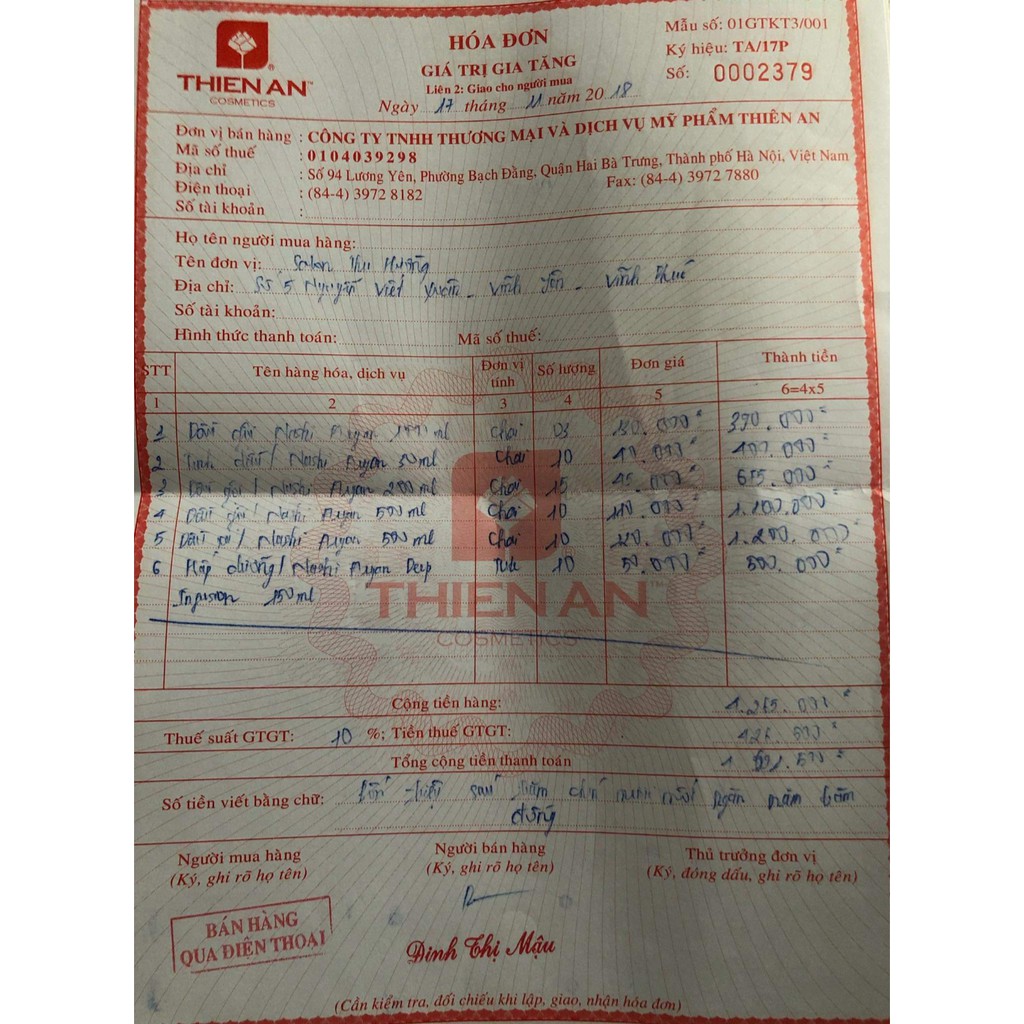 THIEN AN™
COSMETICS
HÓA ĐƠN
GIÁ TRỊ GIA TĂNG
Liên 2: Giao cho người mua
Ngày 17 tháng 11 năm 2018
Mẫu số: 01GTKT3/001
Ký hiệu: TA/17P
Số: 0002379
Đơn vị bán hàng : CÔNG TY TNHH THƯƠNG MẠI VÀ DỊCH VỤ MỸ PHẨM THIÊN AN
Mã số thuế : 0104039298
Địa chỉ : Số 94 Lương Yên, Phường Bạch Đằng, Quận Hai Bà Trưng, Thành phố Hà Nội, Việt Nam
Điện thoại : (84-4) 3972 8182 Fax: (84-4) 3972 7880
Số tài khoản :
Họ tên người mua hàng:
Tên đơn vị: Salon
Địa chỉ: Số 5 Nguyễn Viết Xuân - Vĩnh Yên - Vĩnh Phúc
Số tài khoản:
Hình thức thanh toán: Mã số thuế:
STT Tên hàng hóa, dịch vụ Đơn vị tính Số lượng Đơn giá Thành tiền
1 2 3 4 5 6=4x5
1 Nashi Argan ml Chai 03 130.000 390.000
2 Tinh dầu / Nashi Argan 30ml Chai 10
3 Dầu gội / Nashi Argan 200ml Chai 15 45.000
4 Nashi Argan 500ml Chai 10
5 Dầu xả / Nashi Argan 500ml Chai 10 120.000 1.200.000
6 Hấp dưỡng / Nashi Argan Deep Tub 10 50.000 500.000
Infusion 150ml
THIEN AN™
COSMETICS
Cộng tiền hàng:
Thuế suất GTGT: 10 %; Tiền thuế GTGT:
Tổng cộng tiền thanh toán
Số tiền viết bằng chữ: sáu trăm chín mươi ngàn năm trăm
đồng
Người mua hàng
(Ký, ghi rõ họ tên)
Người bán hàng
(Ký, ghi rõ họ tên)
Thủ trưởng đơn vị
(Ký, đóng dấu, ghi rõ họ tên)
BÁN HÀNG
QUA ĐIỆN THOẠI
Đinh Thị Mậu
(Cần kiểm tra, đối chiếu khi lập, giao, nhận hóa đơn)